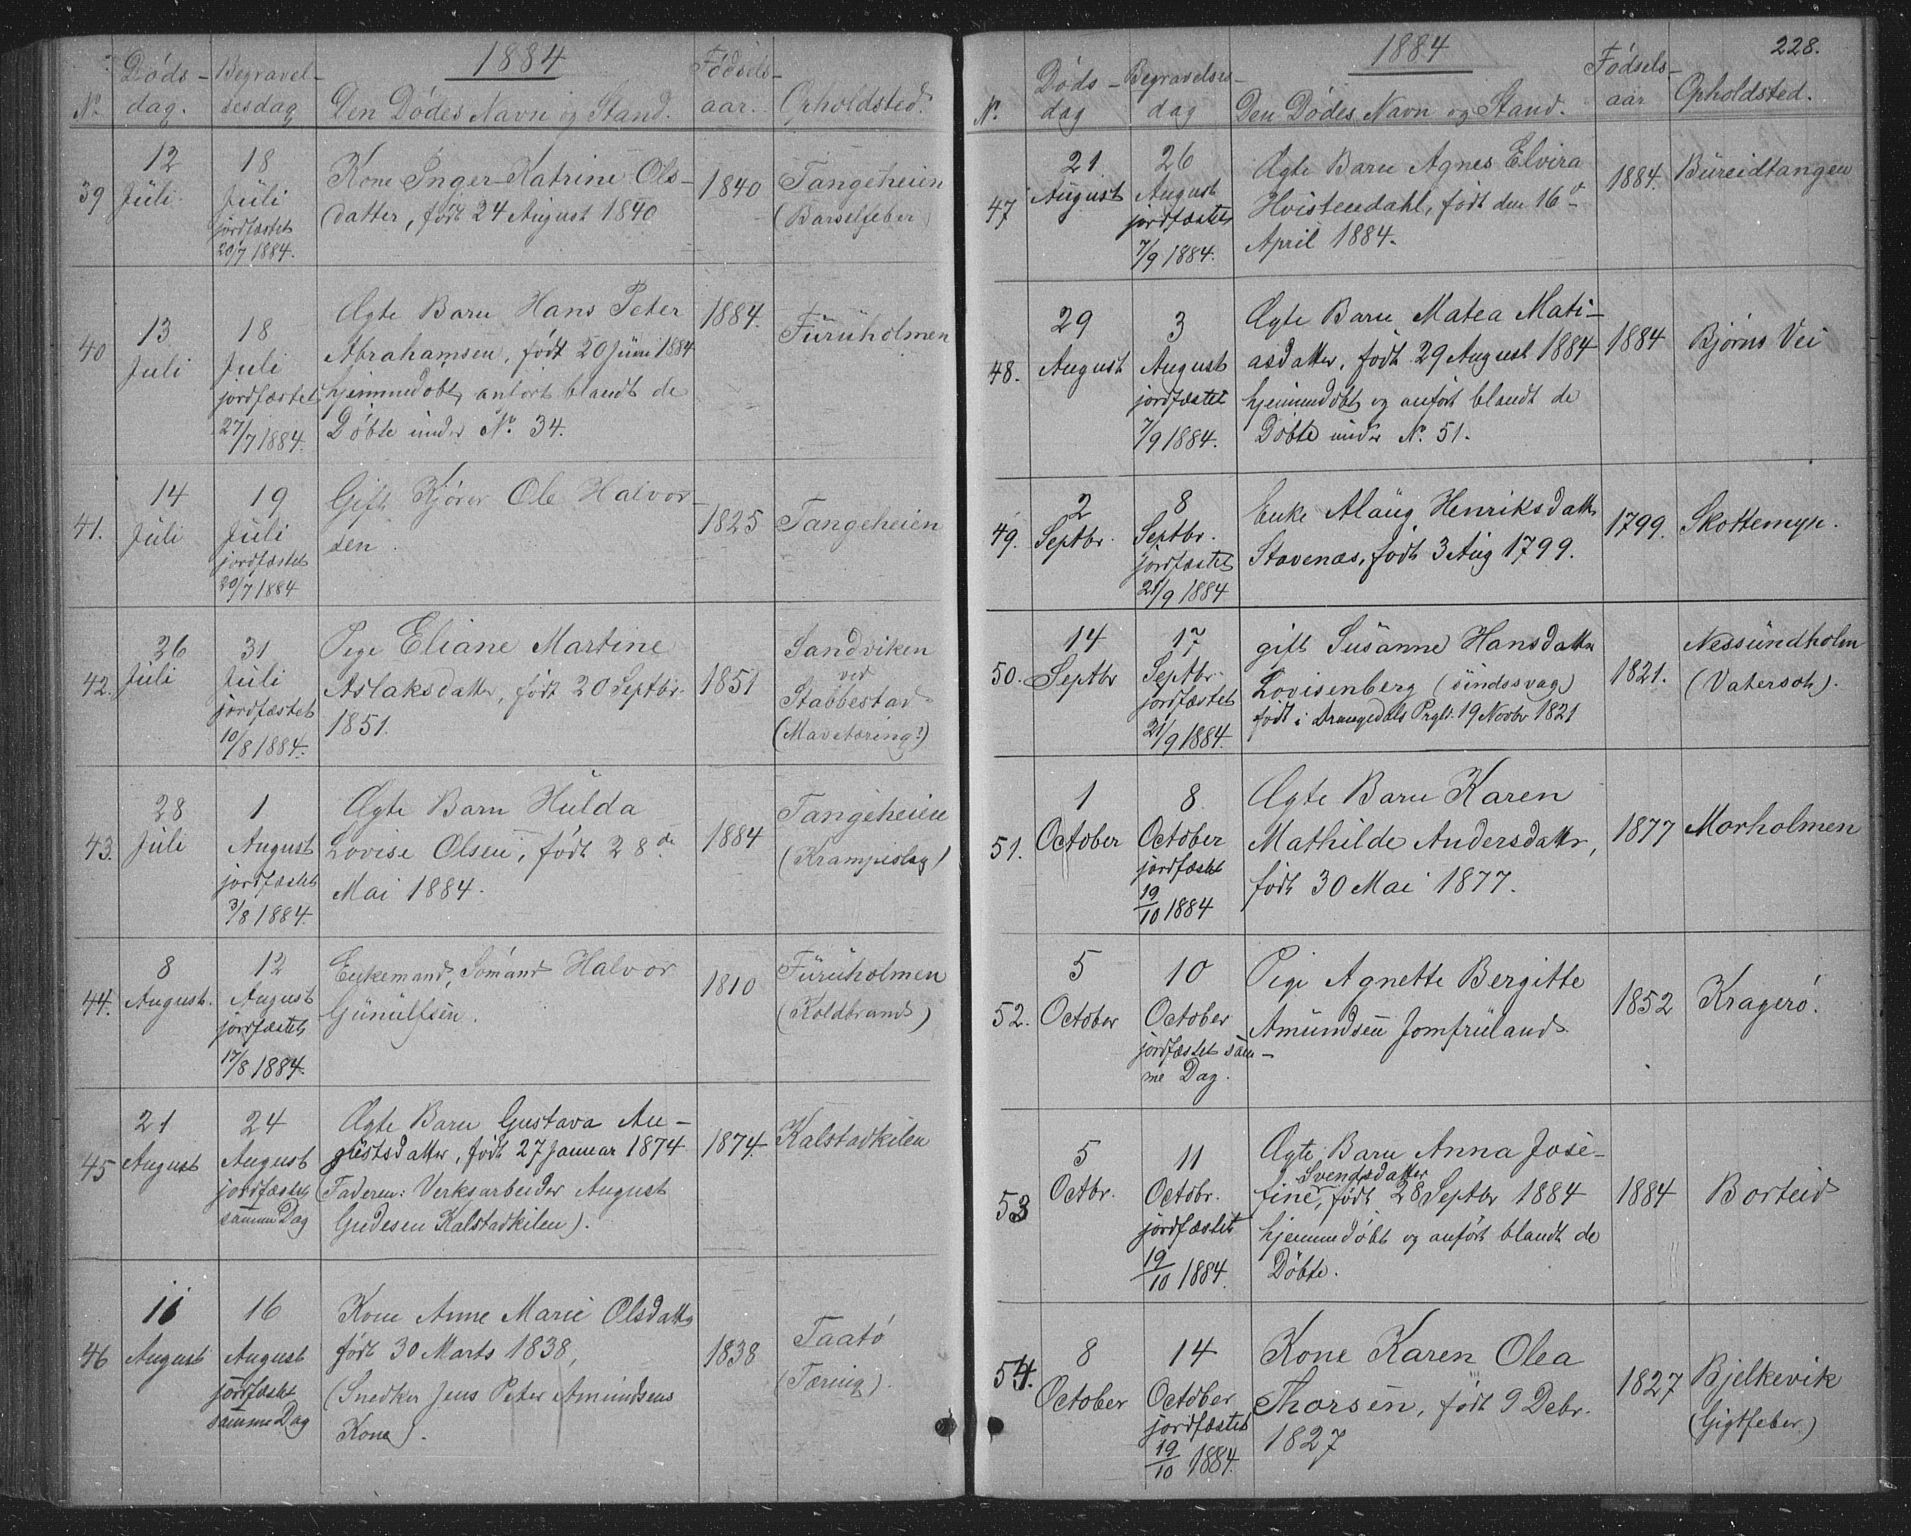 1884
Nr. Døds- dag. Begravel- sesdag Den Dødes Navn og Stand. Fødsels- aar. Opholdsted.
39 12 Juli 18 Juli jordfæstet 20/7 1884. Kone Inger Katrine Ols- datter, født 24 August 1840 1840 Tangeheien (Barselfeber)
40 13 Juli 18 Juli jordfæstet 27/7 1884. Ægte Barn Hans Peter
Abrahamsen, født 20 Juni 1884
hjemmedøbt, anført blandt de
Døbte under No. 34. 1884. Furuholmen
41. 14 Juli 19 Juli jordfæstet 20/7 1884 Gift Ole Halvor-
sen. 1825 Tangeheien
42. 26 Juli 31 Juli jordfæstet 10/8 1884. Pige Eliane Martine
Aslaksdatter, født 20 Septbr.
1851. 1851 Sandviken
ved
Stabbestad
(Mavetæring?)
43. 28 Juli 1 August jordfæstet 3/8 1884. Ægte Barn Hulda
Lovise Olsen, født 28de
Mai 1884. 1884 Tangeheien
(Krampeslag)
44. 8 August. 12 August jordfæstet 17/8 1884. Enkemand, Sømand Halvor
Gunulfsen. 1810 Furuholmen
(Koldbrand)
45 21 August 24 August jordfæstet samme Dag Ægte Barn Gustava Au-
gustsdatter, født 27 Januar 1874
(Faderen: Verksarbeider August
Gudesen Kalstadkilen). 1874 Kalstadkilen
46 11 August 16 August jordfæstet samme Dag Kone Anne Marie Olsdatter
født 30 Marts 1838,
(Snedker Jens Peter Amundsens
Kone). 1838 Taatø
(Tæring).
1884 228.
Nr. Døds- dag Begravelses- dag Den Dødes Navn og Stand. Fødsels- aar Opholdsted.
47 21 August 26 August jordfæstet 7/9 1884. Ægte Barn Agnes Elvira
Hvistendahl, født den 16de
April 1884. 1884. Bureidtangen
48. 29 August 3 August jordfæstet 7/9 1884. Ægte Barn Matea Mati-
asdatter, født 29 August 1884
hjemmedøbt og anført blandt de
Døbte under No. 51. 1884 Bjørns Vei
49. 2 Septbr. 8 Septbr. jordfæstet 21/9 1884 Enke Alaug Henriksdatter
Stavenæs, født 3 Aug 1799. 1799. Skottemyr.
50. 14 Septbr 17 Septbr. jordfæstet 21/9 1884. gift Susanne Hansdatter
Lovisenberg (sindssvag)
født i Drangedals Prgld. 19 Novbr 1821 1821. Nessundholm
(Vatersot).
51. 1 October 8 October jordfæstet 19/10 1884 Ægte Barn Karen
Mathilde Andersdatter,
født 30 Mai 1877. 1877 Morholmen
52. 5 October 10 October jordfæstet sam-
me Dag. Pige Agnette Bergitte
Amundsen Jomfruland 1852 Kragerø.
53 5 Octbr. 11 Octobr. jordfæstet 19/10 1884. Ægte Barn Anna Jose-
fine Svendsdatter, født 28 Septbr 1884
hjemmedøbt og anført blandt de
Døbte. 1884 Borteid
54. 8 October 14 October jordfæstet 19/10 1884. Kone Karen Olea
Thorsen, født 9 Debr.
1827 1827 Bjelkevik
(Gigtfeber.)